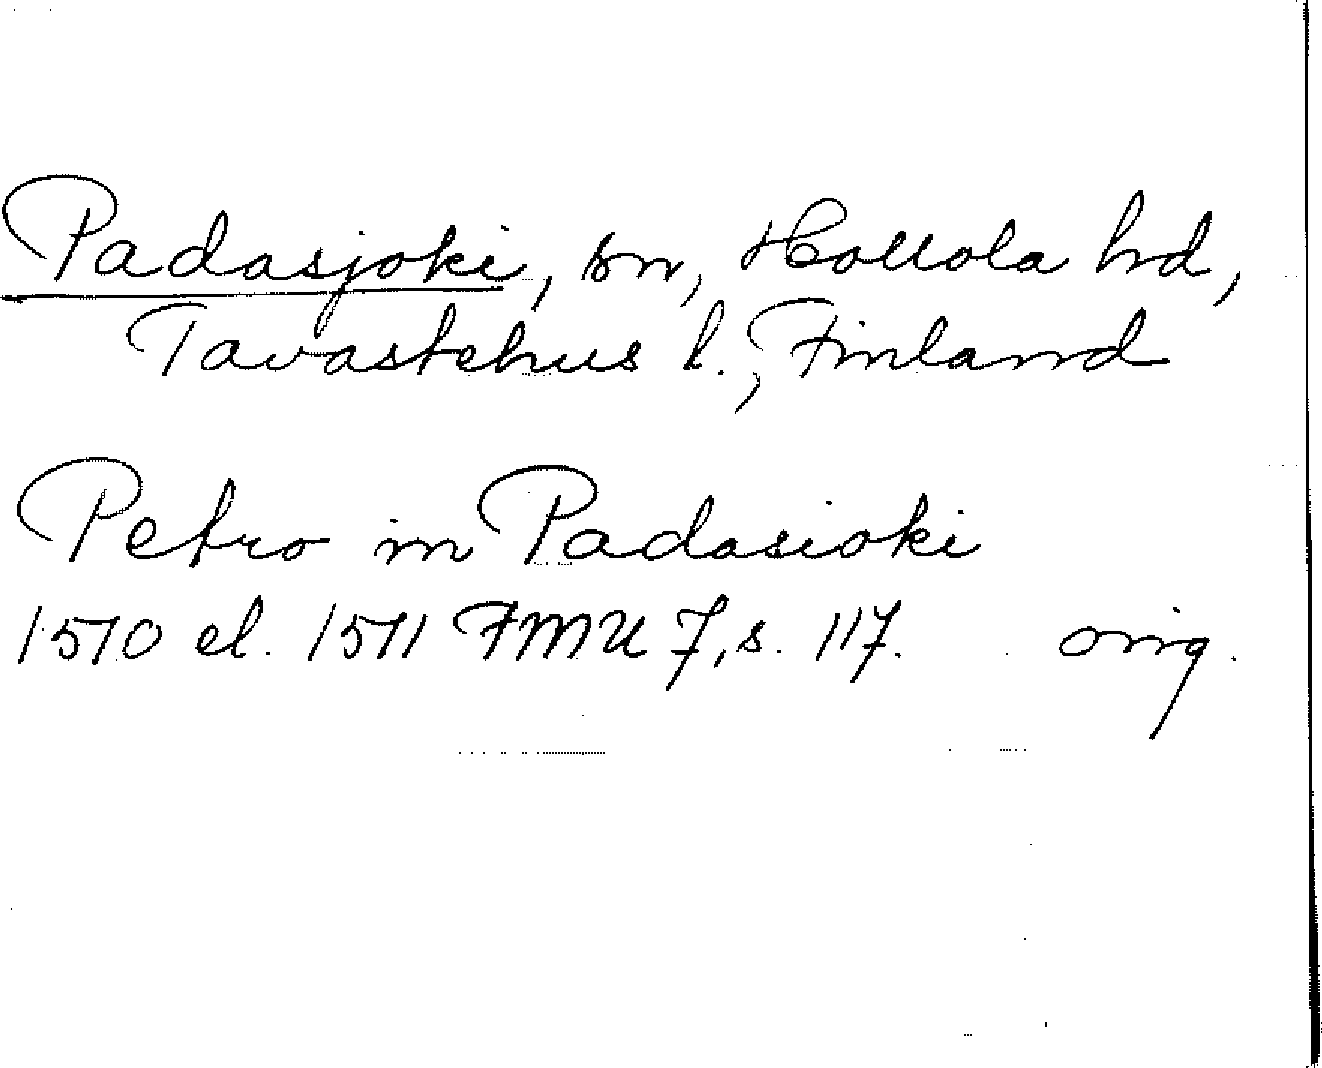 Padasjoki, sn, Hollola hd,
Tavastehus l., Finland
Petro in Padasioki
1570 el. 1571 FMU 7, s. 117. orig.